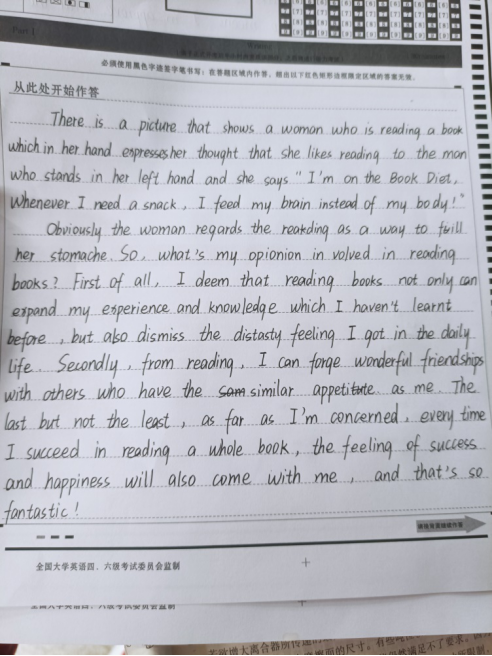 Part I
必须使用黑色字迹签字笔书写：在答题区域内作答，超出以下红色矩形边框限定区域的答案无效。
从此处开始作答
There is a picture that shows a woman who is reading a book
which in her hand expresses her thought that she likes reading to the man
who stands in her left hand and she says "I'm on the Book Diet,
Whenever I need a snack, I feed my brain instead of my body!"
Obviously the woman regards the reakding as a way to fwill
her stomache. So, what's my opionion in volved in reading
books? First of all, I deem that reading books not only can
expand my experience and knowledge which I haven't learnt
before, but also dismiss the distasty feeling I got in the daily
life. Secondly, from reading, I can forge wonderful friendships
with others who have the sam similar appetitate as me. The
last but not the least, as far as I'm concerned, every time
I succeed in reading a whole book, the feeling of success
and happiness will also come with me, and that's so
fantastic!
全国大学英语四、六级考试委员会监制
全国大学英语四、六级考试委员会监制